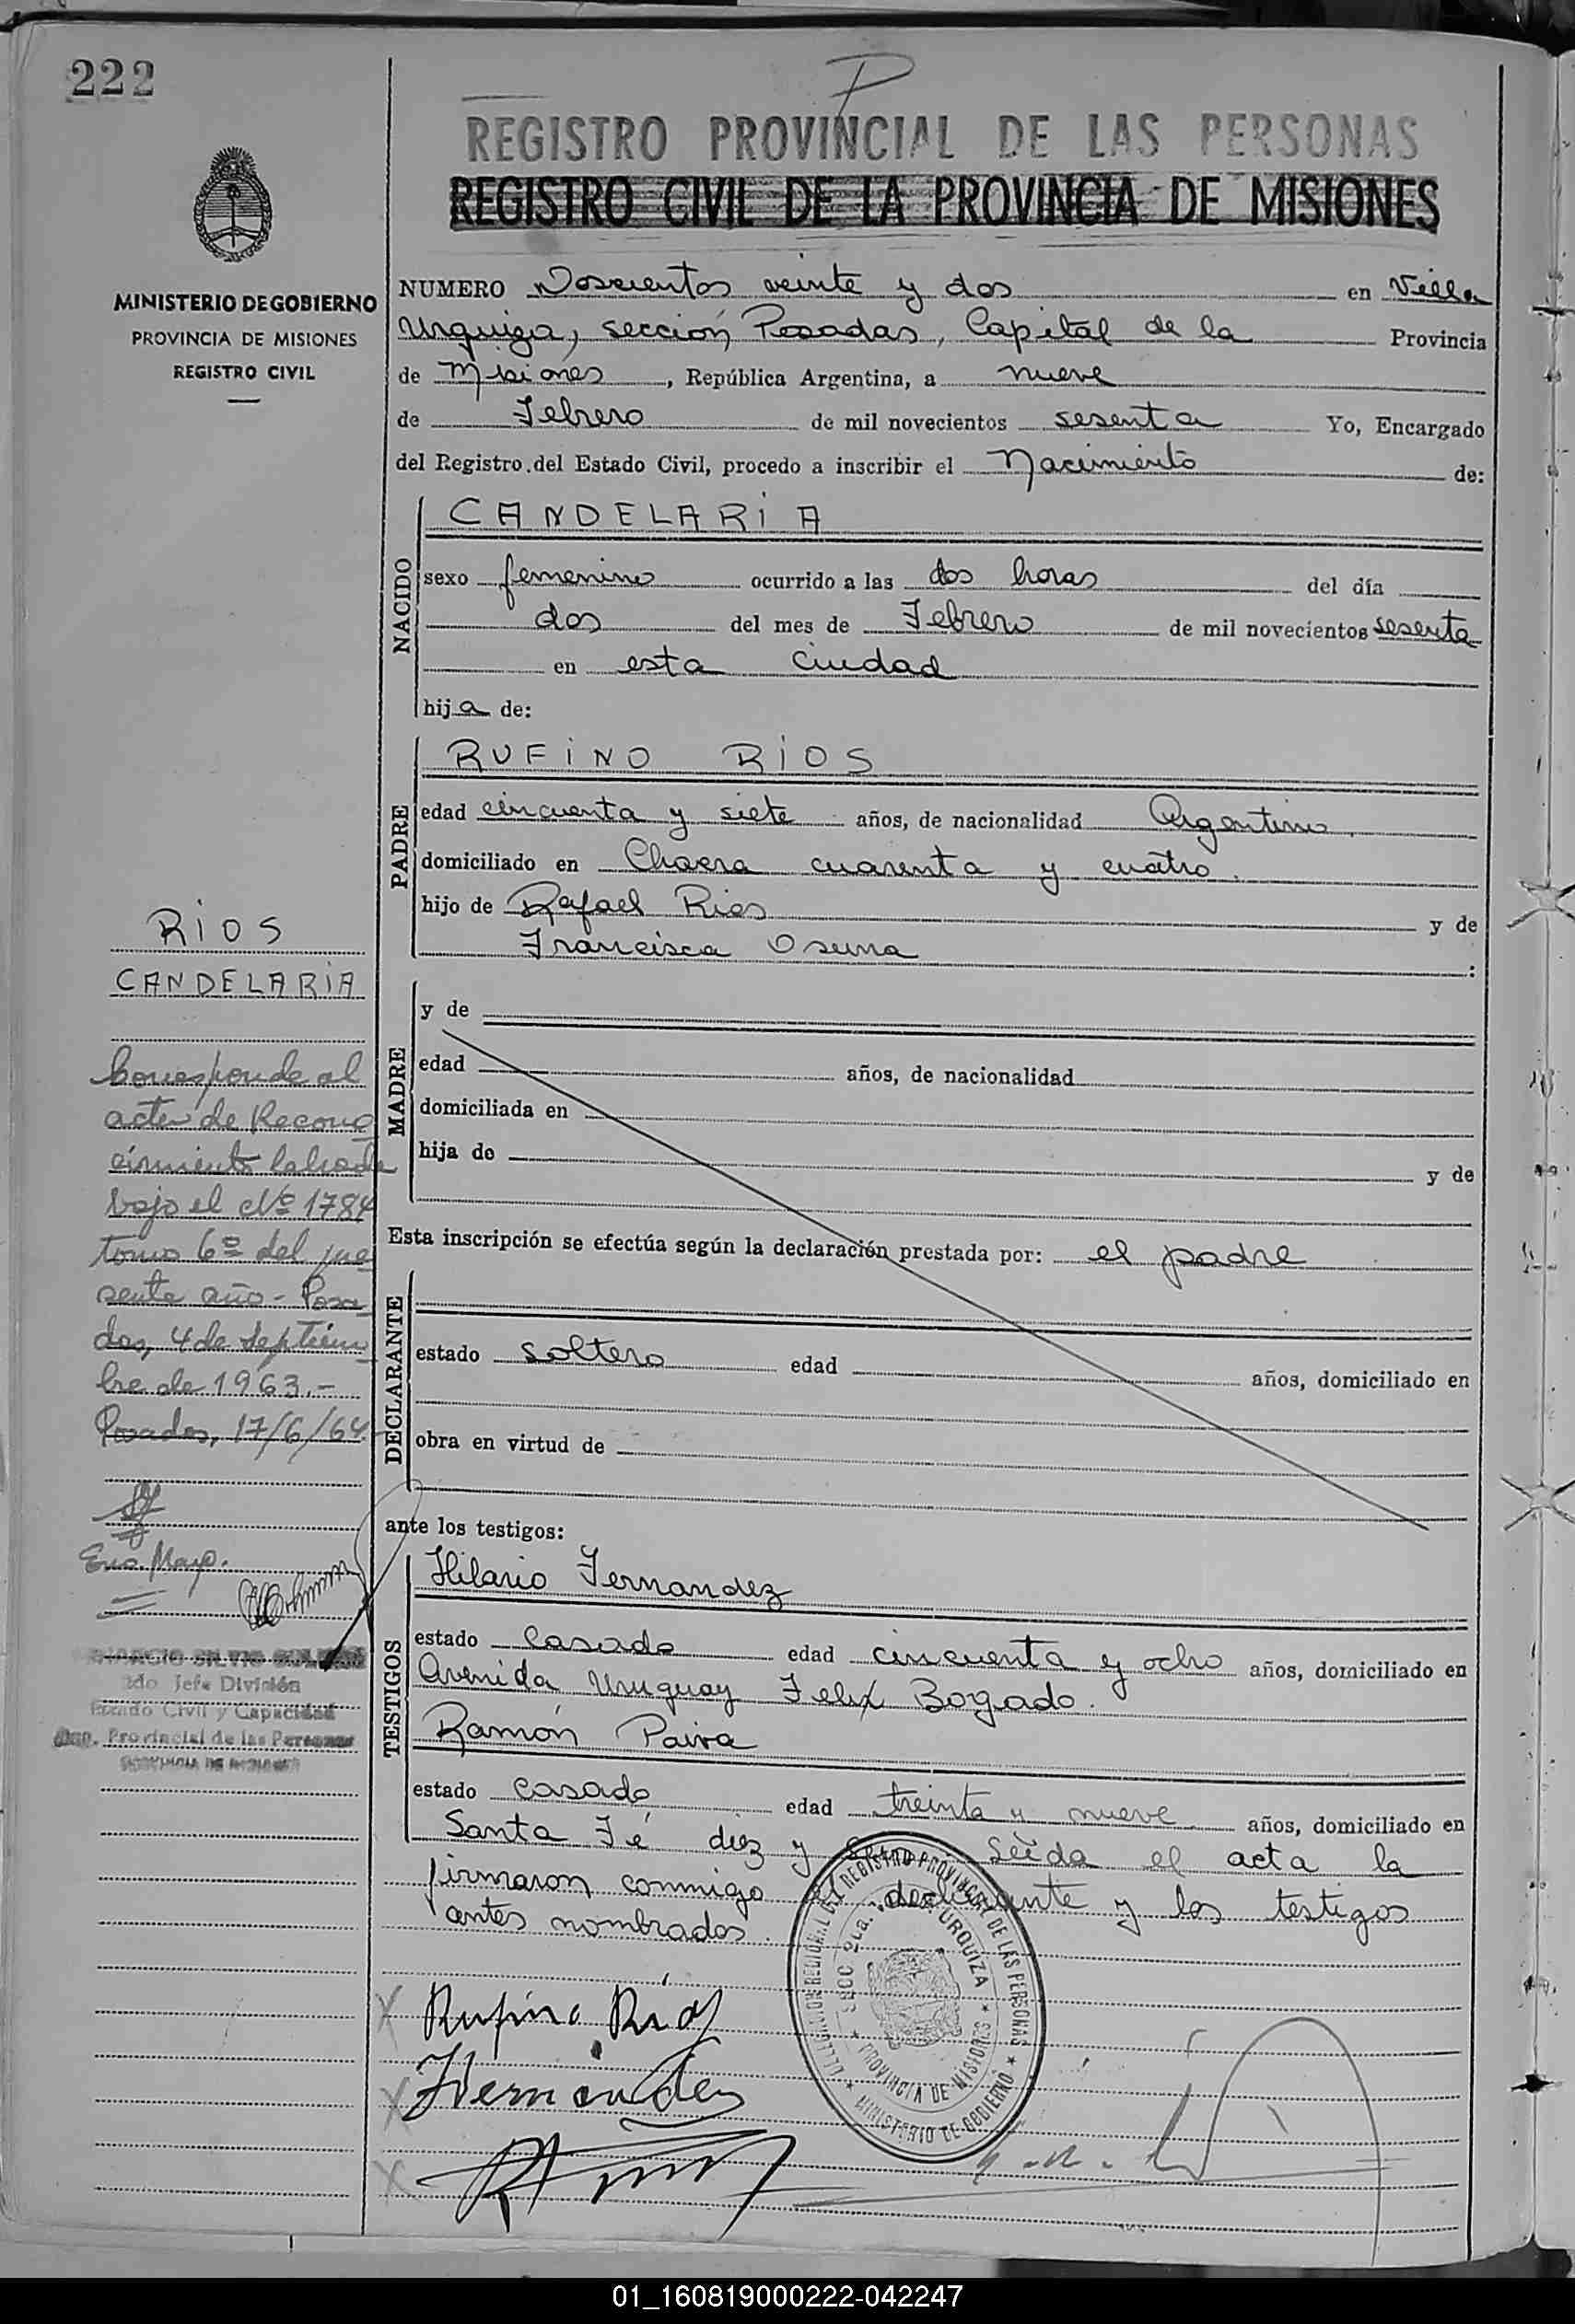 222
P
REGISTRO PROVINCIAL DE LAS PERSONAS
REGISTRO CIVIL DE LA PROVINCIA DE MISIONES
MINISTERIO DE GOBIERNO
PROVINCIA DE MISIONES
REGISTRO CIVIL
NUMERO Doscientos veinte y dos en Villa
Urquiza, sección Posadas, Capital de la Provincia
de Misiones, República Argentina, a nueve
de Febrero de mil novecientos sesenta Yo, Encargado
del Registro del Estado Civil, procedo a inscribir el Nacimiento de:
NACIDO
CANDELARIA
sexo femenino ocurrido a las dos horas del día
dos del mes de Febrero de mil novecientos sesenta
en esta ciudad
hija de:
PADRE
RUFINO RIOS
edad cincuenta y siete años, de nacionalidad Argentino
domiciliado en Chacra cuarenta y cuatro.
hijo de Rafael Rios y de
Francisca Osuna :
MADRE
y de
edad años, de nacionalidad
domiciliada en
hija de y de
Esta inscripción se efectúa según la declaración prestada por: el padre
DECLARANTE
estado soltero edad años, domiciliado en
obra en virtud de
ante los testigos:
TESTIGOS
Hilario Fernandez
estado casado edad cincuenta y ocho años, domiciliado en
Avenida Uruguay Felix Bogado.
Ramón Paiva
estado casado edad treinta y nueve años, domiciliado en
Santa Fé diez y Leida el acta la
firmaron conmigo el declarante y los testigos
antes nombrados.
Rufino Rios
Fernandez
RIOS
CANDELARIA
Corresponde al
acta de Recono
cimiento labrada
bajo el Nº 1784
tomo 6º del pre
sente año - Posa
das, 4 de Septiem
bre de 1963.-
Posadas, 17/6/64.
2do Jefe División
Estado Civil y Capacidad
Provincial de las Personas
PROVINCIA DE MISIONES
DELEGACION REGIONAL DEL REGISTRO PROVINCIAL DE LAS PERSONAS
MINISTERIO DE GOBIERNO
SECC 2ta. URQUIZA
PROVINCIA DE MISIONES
01_160819000222-042247